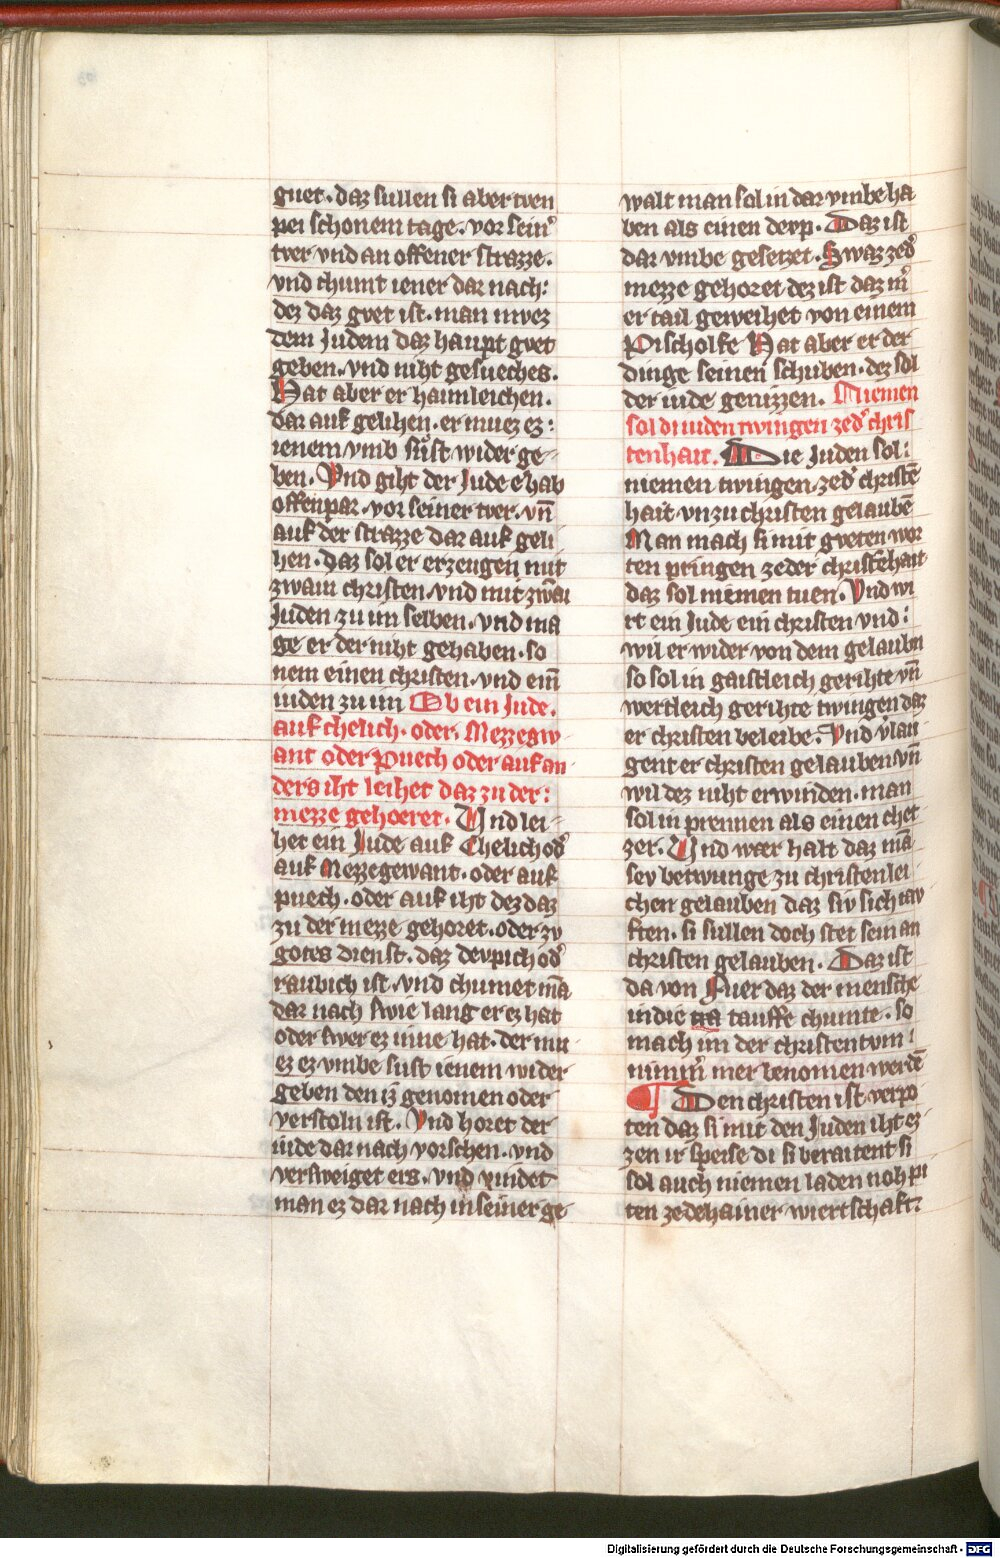 guet. daz sullen si aber twen
pei schonem tage. vor sein᷑
twer vnd an offener strazze.
vnd chumt iener dar nach:
dez daz gvet ist. man mvez
dem Judem daz haupt gvet
geben. vnd niht gesueches.
Hat aber er haimleichen.
dar auf gelihen. er muez ez:
ienem vmb sust wider ge-
ben. Vnd giht der Jude e hab
offenpar. vor seiner twer. vn̄
auf der strazze dar auf geli
hen. daz sol er erzeugen mit
zwain christen. vnd mit zwaī
Juden zu im selben. vnd ma
ge er der niht gehaben. so
nem einen christen. vnd ein̄
iuden zu im Ob ein Jude.
auf chelich. oder. Mezzegw
ant oder puech oder auf an
ders iht leihet daz zu der:
mezze gehoeret. Vnd lei-
het ein Jude auf Chelich od᷑
auf Mezzegewant. oder auf
puech. oder auf iht dez daz
zu der mezze gehoret. oder zv
gotes dienst. daz devpich od᷑
raubich ist. vnd chumet mā
dar nach swie lang er ez hat
oder swer ez inne hat. der mu
ez ez vmbe sust ienem wider
geben den iz genomen oder
verstoln ist. Vnd horet der
iude dar nach vorschen. vnd
versweiget ers. vnd vindet
man ez dar nach in seiner ge-
walt man sol in dar vmbe ha
ben als einen devp. Daz ist
dar vmbe gesetzet. Swaz zed᷑
mezze gehoret dez ist daz m᷑
er tail geweihet von einem
Pischolfe Hat aber er der
dinge seinen schuben. dez sol
der iude genizzen. Niemen
sol di iuden twingen zed᷑ chris
tenhait. Die Juden sol:
niemen twingen. zed᷑ christē
hait vn zu christen gelaubē
Man mach si mit gveten wor
ten pringen zeder christēhait
daz sol niemen tuen. Vnd wi
rt ein Jude ein christen vnd:
wil er wider von dem gelaubn
so sol in gaistleich gerihte vn̄
wertleich gerihte twingen daz
er christen beleibe. Vnd v᷑lau
gent er christen gelauben vn̄
wil dez niht erwinden. man
sol in prennen als einen chet
zer. Vnd waer halt daz mā
sev betwunge zu christenlei
chen gelauben daz siv sich tav
ften. si sullen doch stet sein an
christen gelauben. Daz ist
da von Fuer daz der mensche
in die tra tauffe chumte. so
mach im der christentvm:
nimm᷑ mer benomen werdē
Den christen ist verpo
ten daz si mit den Juden iht ez-
zen ir speise di si beraitent si
sol auch niemen laden noh pi
ten zedehainer wiertschaft:
Digitalisierung gefördert durch die Deutsche Forschungsgemeinschaft - DFG